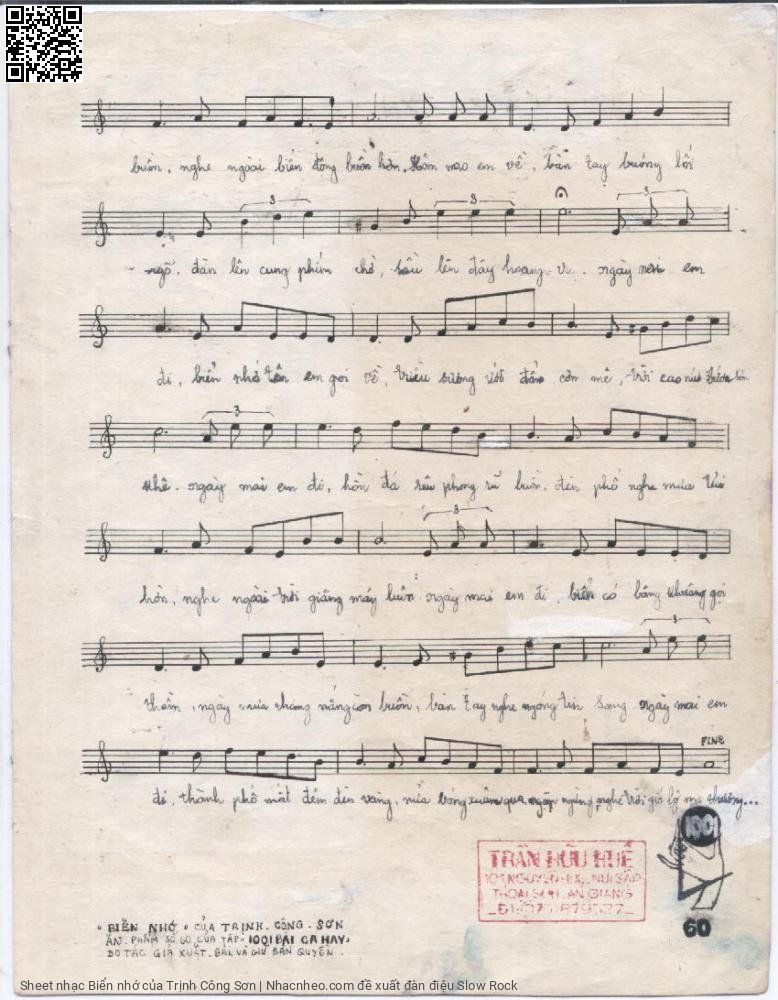 buồn, nghe ngoài biển động buồn hơn. Hôm nao em về, bàn tay buông lối
3 3
ngõ, đàn lên cung phím chờ, sầu lên đây hoang vu. ngày mai em
đi, biển nhớ tên em gọi về, triều sương ướt đẫm cơn mê, trời cao níu bước sơn
3
khê. ngày mai em đi, hồn đá rêu phong rũ buồn, đèn phố nghe mưa tủi
3
hờn, nghe ngoài trời giăng mây luôn. ngày mai em đi, biển có bâng khuâng gọi
3
thầm, ngày mưa tháng nắng còn buồn, bàn tay nghe ngóng tin sang ngày mai em
FINE
đi, thành phố mắt đêm đèn vàng, nửa bóng xuân qua ngập ngừng nghe trời gió lộ
1001
TRẦN HỮU HUẾ
THOẠI SƠN AN GIANG
60
"BIỂN NHỚ" CỦA TRỊNH. CÔNG. SƠN
ẤN. PHẨM SỐ 60 CỦA TẬP. 1001 BÀI CA HAY.
DO TÁC GIẢ XUẤT. BẢN VÀ GIỮ BẢN QUYỀN.
Sheet nhạc Biển nhớ của Trịnh Công Sơn | Nhacnheo.com đề xuất đàn điệu Slow Rock